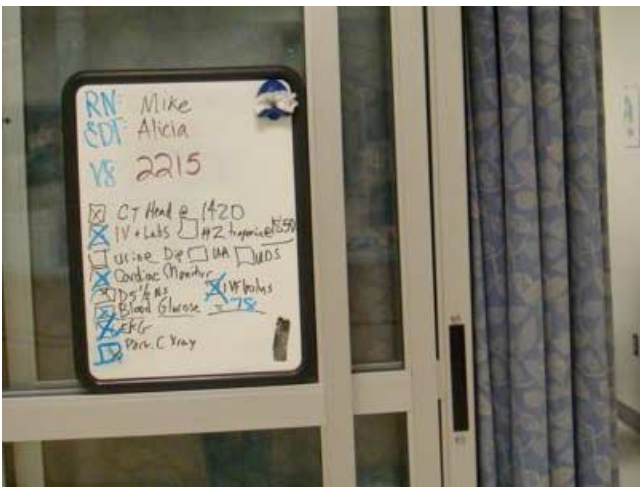 RN: Mike
EDT Alicia
VS 2215
CT Head @ 1420
IV + Labs #2 troponin @ 1550
Urine Dip UA UDS
Cardiac Monitor
D5 ½ NS IVF bolus
Blood Glucose = 78
EKG
Port. C Xray